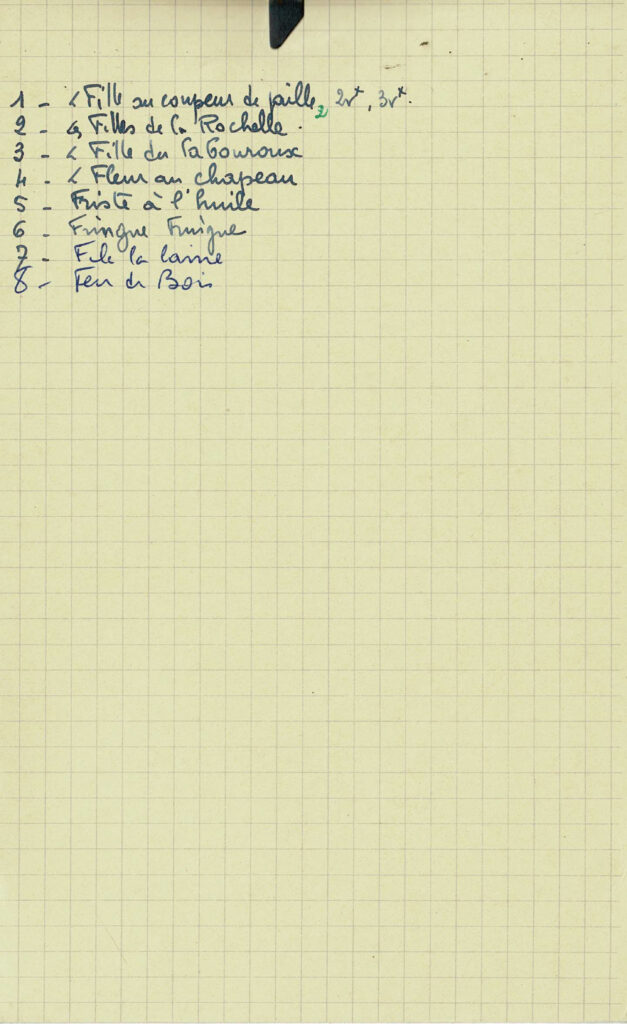 1 - La Fille au coupeur de paille, 2vx, 3vx.
2 - Les Filles de La Rochelle.
3 - La Fille du Labouroux
4 - La Fleur au chapeau
5 - Friste à l'huile
6 - Fringue Fringue
7 - File la laine
8 - Feu de Bois